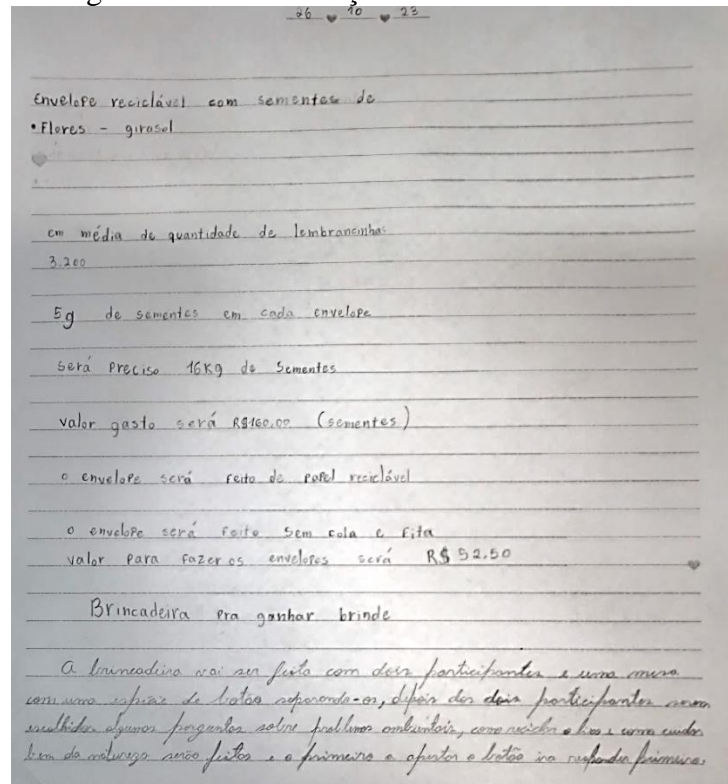 26 10 23
Envelope reciclável com sementes de
• Flores - girasol
em média de quantidade de lembrancinhas
3.200
5g de sementes em cada envelope
será preciso 16Kg de sementes
valor gasto será R$160,00 (sementes)
o envelope será feito de papel reciclável
o envelope será feito sem cola e fita
valor para fazer os envelopes será R$ 52.50
Brincadeira pra ganhar brinde
A brincadeira vai ser feita com dois participantes e uma mesa
com uma espécie de botão separando-os, depois dos dois participantes serem
escolhidos algumas perguntas sobre problemas ambientais, como reciclar o lixo e como cuidar
bem da natureza serão feitas e o primeiro a apertar o botão ira responder primeiro.